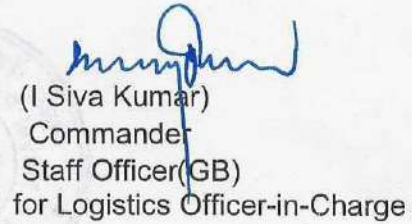 (I Siva Kumar)
Commander
Staff Officer(GB)
for Logistics Officer-in-Charge